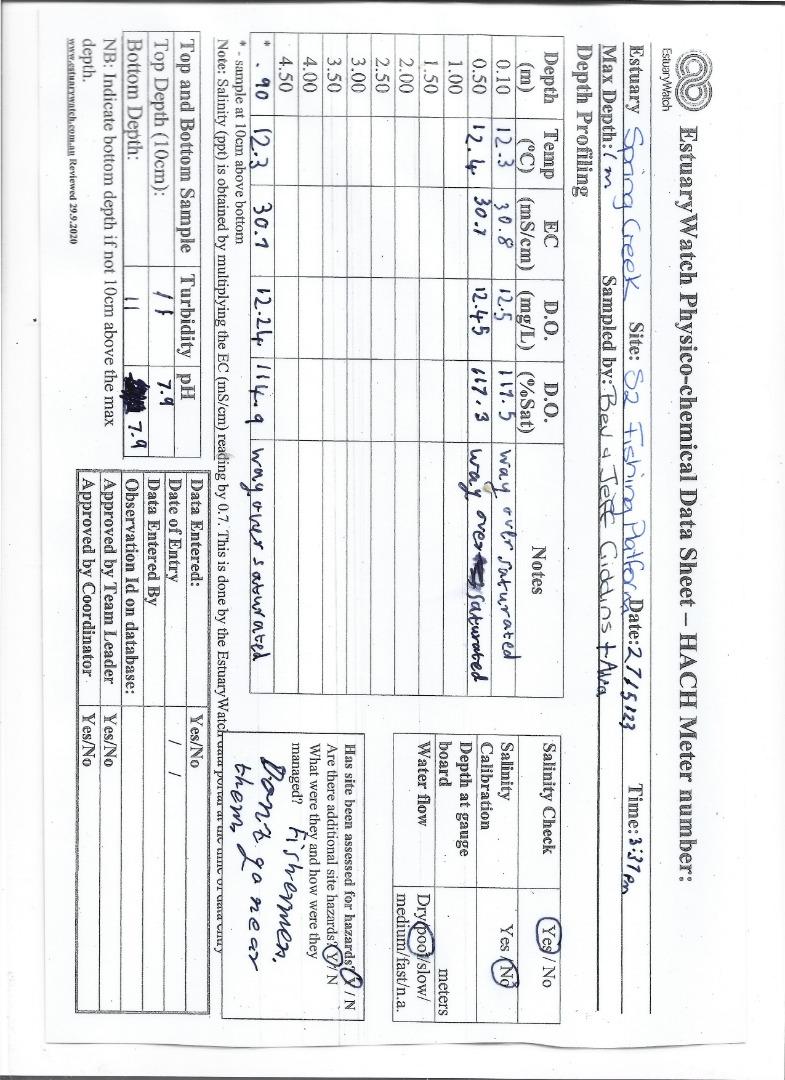 EstuaryWatch
EstuaryWatch Physico-chemical Data Sheet – HACH Meter number:
Estuary Spring Creek Site: S2 Fishing Platform Date: 27/5/23 Time: 3:37pm
Max Depth: 1m Sampled by: Bev & Jeff Giddins + Ava
Depth Profiling
Depth (m) Temp (°C) EC (mS/cm) D.O. (mg/L) D.O. (%Sat) Notes
0.10 12.3 30.8 12.5 117.5 way over saturated
0.50 12.4 30.7 12.45 117.3 way over saturated
1.00
1.50
2.00
2.50
3.00
3.50
4.00
4.50
* .90 12.3 30.7 12.24 114.9 way over saturated
* - sample at 10cm above bottom
Note: Salinity (ppt) is obtained by multiplying the EC (mS/cm) reading by 0.7. This is done by the EstuaryWatch data portal at the time of data entry
Salinity Check Yes / No
Salinity Calibration Yes / No
Depth at gauge board meters
Water flow Dry/pool/slow/
medium/fast/n.a.
Has site been assessed for hazards? Y / N
Are there additional site hazards? Y / N
What were they and how were they
managed? fishermen.
Don't go near
them.
Top and Bottom Sample Turbidity pH
Top Depth (10cm): 11 7.9
Bottom Depth: 11 7.9
NB: Indicate bottom depth if not 10cm above the max
depth.
www.estuarywatch.com.au Reviewed 29.9.2020
Data Entered: Yes/No
Date of Entry / /
Data Entered By
Observation Id on database:
Approved by Team Leader Yes/No
Approved by Coordinator Yes/No